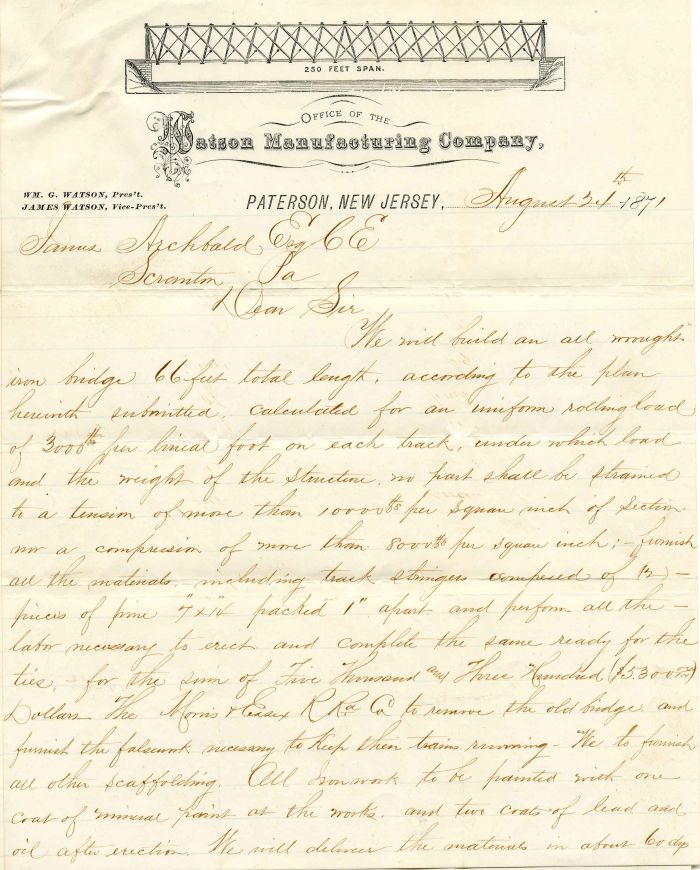 250 FEET SPAN.
OFFICE OF THE
Watson Manufacturing Company,
WM. G. WATSON, Pres't.
JAMES WATSON, Vice-Pres't.
PATERSON, NEW JERSEY, August 24th 1871
James Archbald Esq C E
Scranton Pa
Dear Sir
We will build an all wrought
iron bridge 66 feet total length, according to the plan
herewith submitted, calculated for an uniform rolling load
of 3000 lbs per lineal foot on each track, under which load
and the weight of the structure, no part shall be strained
to a tension of more than 10000 lbs per square inch of section
nor a compression of more than 8000 lbs per square inch; - furnish
all the materials including track stringers composed of (2) -
pieces of pine 7"x14" packed 1" apart and perform all the -
labor necessary to erect and complete the same ready for the
ties, - for the sum of Five Thousand and Three Hundred ($5.300 00/100)
Dollars The Morris & Essex R Rd Co to remove the old bridge and
furnish the falsework necessary to keep their trains running - We to furnish
all other scaffolding. All Ironwork to be painted with one
coat of mineral paint at the works, and two coats of lead and
oil after erection. We will deliver the materials in about 60 dys